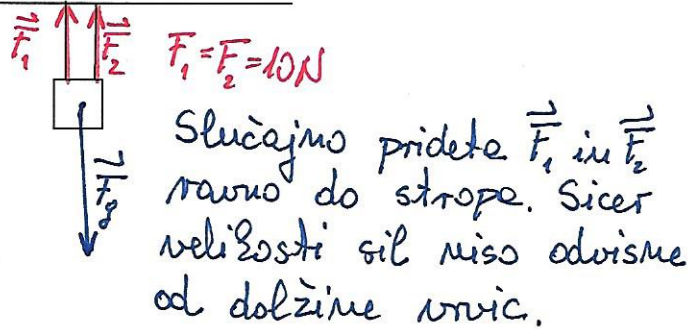 F₁ F₂ F₁=F₂=10N
Slučajno prideta F₁ in F₂
Fg ravno do stropa. Sicer
velikosti sil niso odvisne
od dolžine vrvic.